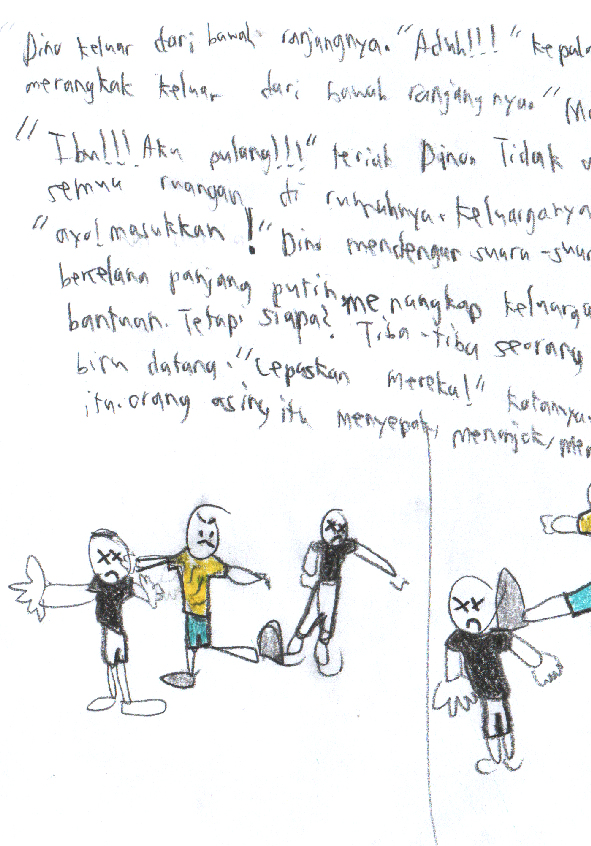 Dino keluar dari bawah ranjangnya. "Aduh!!!" kepala
merangkak keluar dari bawah ranjangnya. "M
"Ibu!!! Aku pulang!!!" teriak Dino. Tidak
semua ruangan di rumahnya. keluarganya
"ayo! masukkan!" Dino mendengar suara-suar
bercelana panjang putih menangkap keluarga
bantuan. Tetapi siapa? Tiba-tiba seorang
biru datang. "Lepaskan mereka!" katanya.
itu. orang asing itu menyepak, menonjok, me